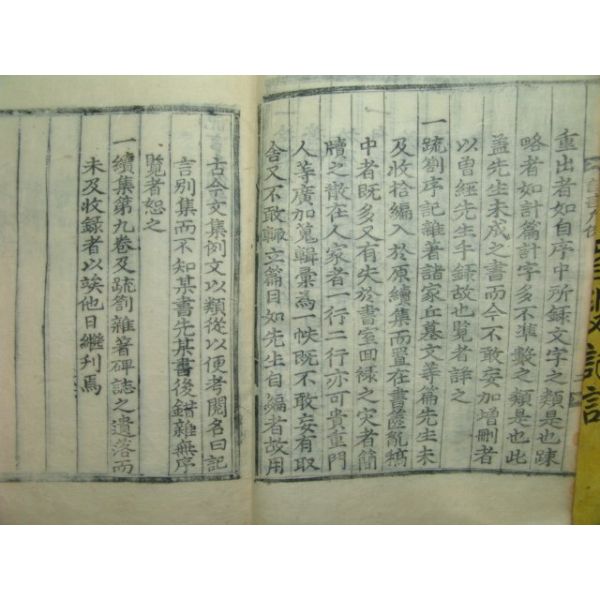 重出者如自序中所録文字之類是也踈
略者如計篇計字多不準數之類是也此
盖先生未成之書而今不敢妄加增刪者
以曾經先生手録故也覧者詳之
一疏劄序記雜著諸家丘墓文等篇先生未
及收拾編入於原續集而置在書篋亂稿
中者既多又有失於書室回祿之灾者簡
牘之散在人家者一行二行亦可貴重門
人等廣加蒐輯彙爲一帙既不敢妄有取
舍又不敢輒立篇目如先生自編者故用
古今文集例文以類從以便考閲名曰記
言別集而不知某書先某書後錯雜無序
覧者恕之
一續集第九卷及疏劄雜著碑誌之遺落而
未及收録者以竢他日繼刊焉